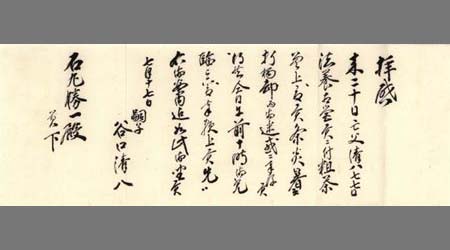 拝啓
来二十日亡父清八七七日
法養相営候ニ付粗茶
差上度候条炎暑
折柄御迷惑
得共今日午前十時御光
臨被下度奉願上候先ハ
右御案内迄如此御座候
七月十七日
嗣子
谷口清八
石丸勝一殿